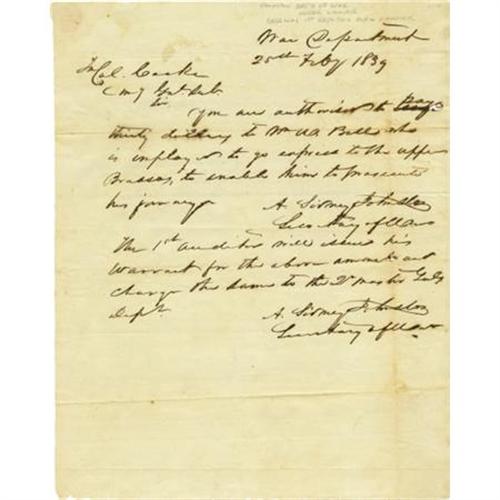 War Department
25th Feby 1839
To Col. Cooke
Comy Genl. Sub.
Sir
You are authorised to pay
thirty dollars to Mr. who
is employed to go express to the upper
Brassos, to enable him to prosecute
his journey
A. Sidney Johnston
Secretary of War
The 1st auditor will issue his
warrant for the above amount and
charge the same to the Qr Master Genls
Dept.
A. Sidney Johnston
Secretary of War